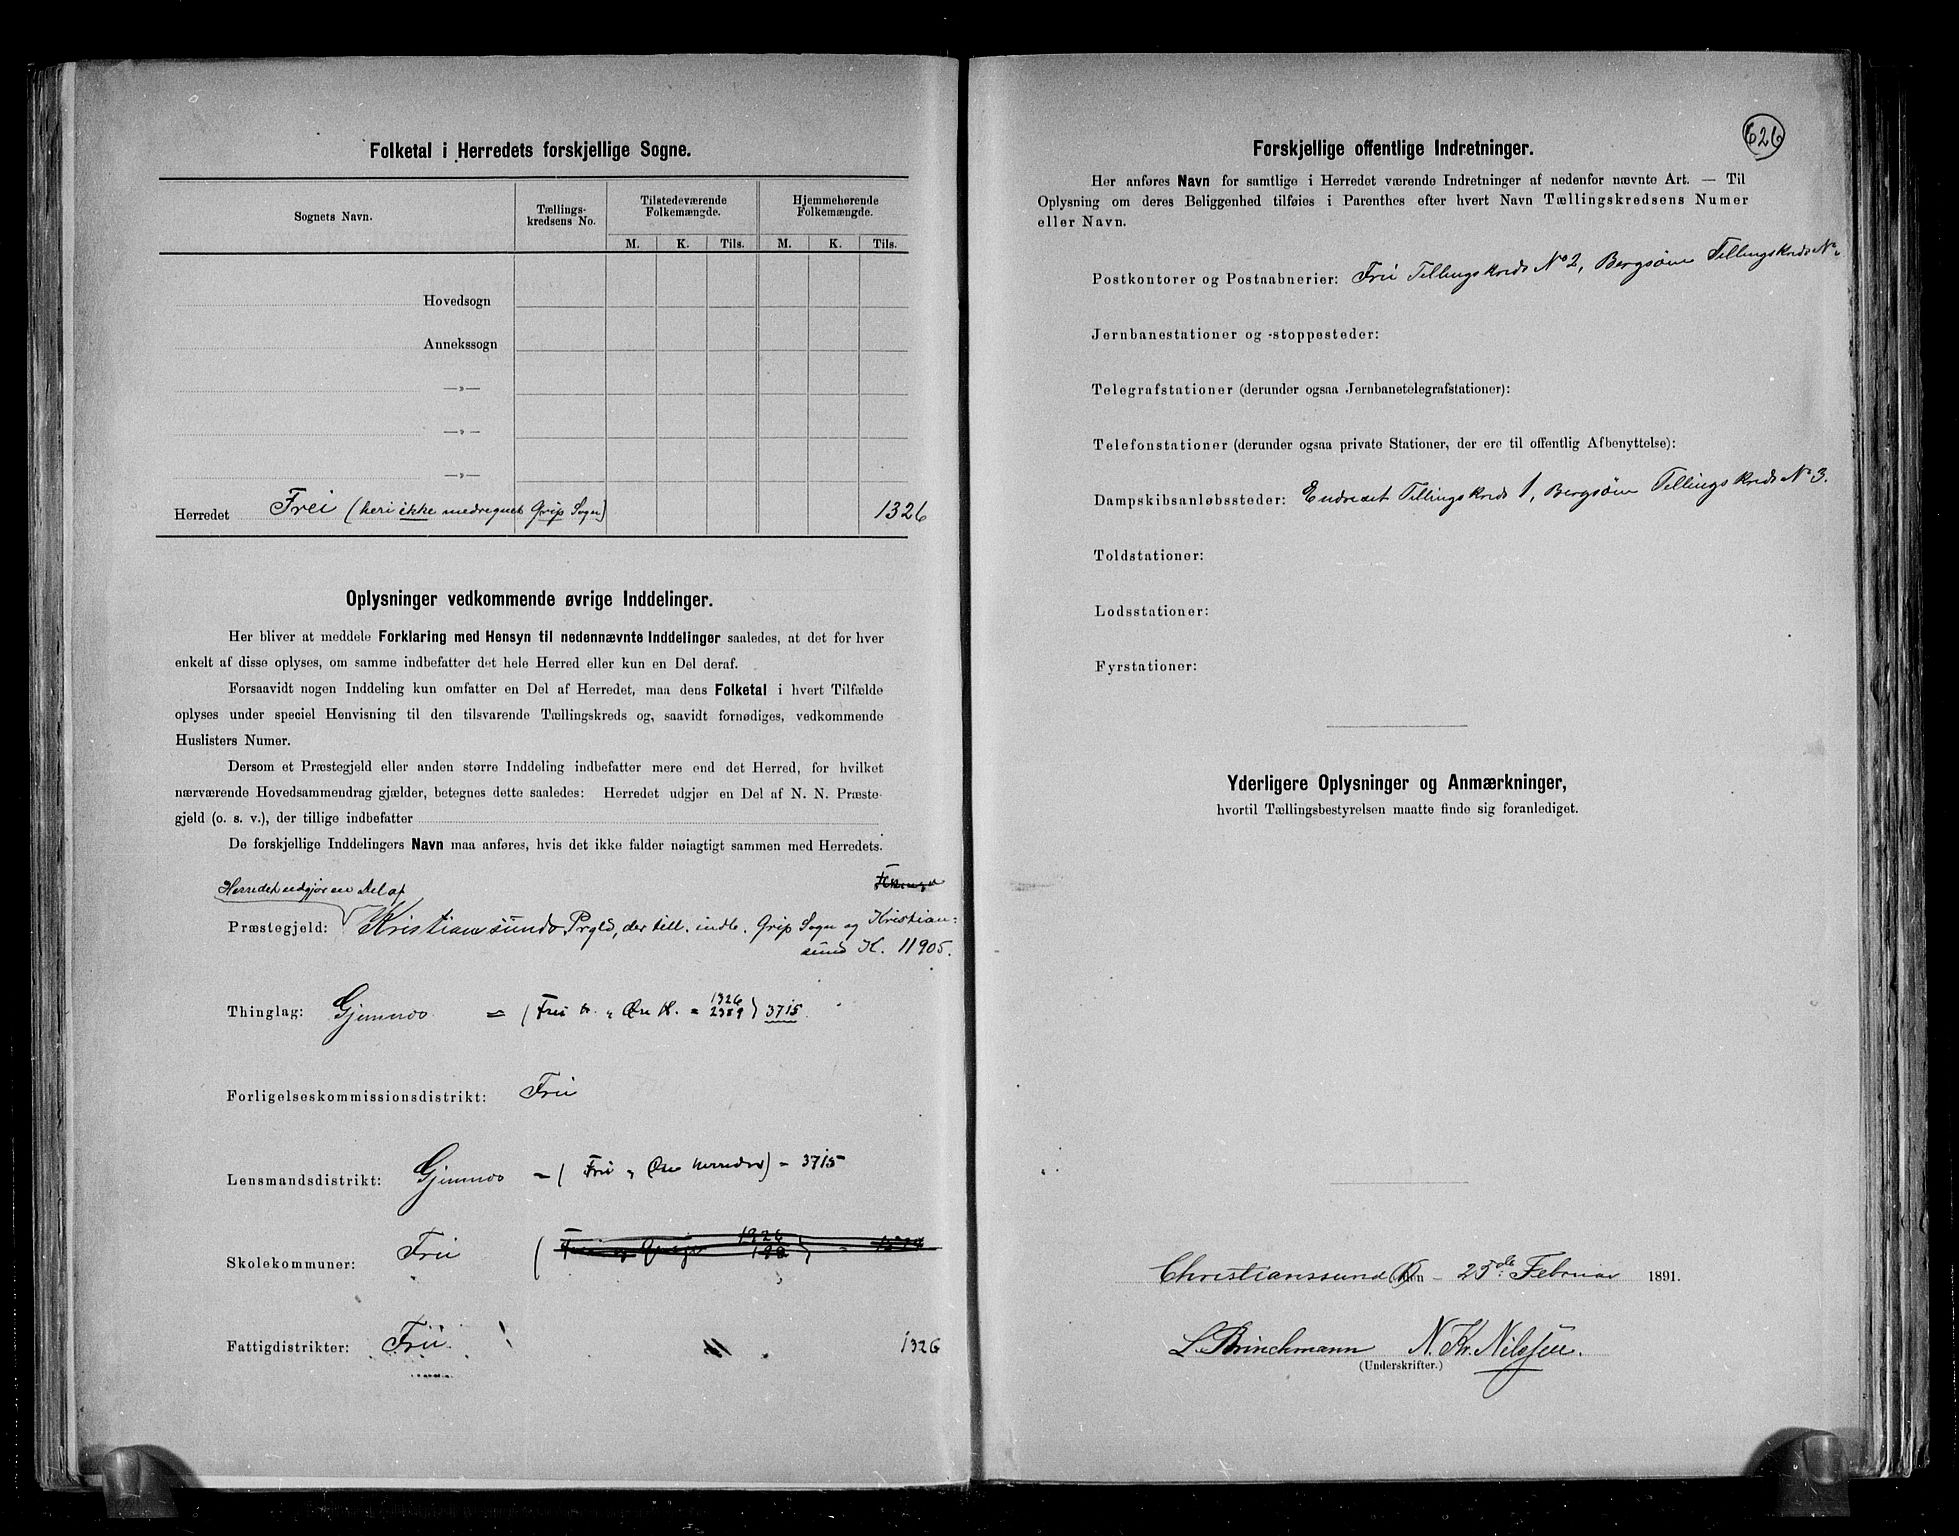 Folketal i Herredets forskjellige Sogne.
Sognets Navn.
Tællings-
kredsens No.
Tilstedeværende
Folkemængde.
Hjemmehørende
Folkemængde.
M. K. Tils. M. K. Tils.
Hovedsogn
Annekssogn
—„—
—„—
—„—
Herredet Frei (heri ikke medregnet Grip Sogn) 1326
Oplysninger vedkommende øvrige Inddelinger.
Her bliver at meddele Forklaring med Hensyn til nedennævnte Inddelinger saaledes, at det for hver
enkelt af disse oplyses, om samme indbefatter det hele Herred eller kun en Del deraf.
Forsaavidt nogen Inddeling kun omfatter en Del af Herredet, maa dens Folketal i hvert Tilfælde
oplyses under speciel Henvisning til den tilsvarende Tællingskreds og, saavidt fornødiges, vedkommende
Huslisters Numer.
Dersom et Præstegjeld eller anden større Inddeling indbefatter mere end det Herred, for hvilket
nærværende Hovedsammendrag gjælder, betegnes dette saaledes: Herredet udgjør en Del af N. N. Præste-
gjeld (o. s. v.), der tillige indbefatter
De forskjellige Inddelingers Navn maa anføres, hvis det ikke falder nøiagtigt sammen med Herredets.
Herredet udgjør en Del af
Præstegjeld: Kristiansunds Prgld, der till. indb. Grip Sogn og Kristian-
sund K. 11905.
1326
Thinglag: Gjemnæs = (Frei H. og Øre H. = 2389) 3715
Forligelseskommissionsdistrikt: Frei
Lensmandsdistrikt: Gjemnæs = (Frei og Øre Herreder) = 3715
1326
Skolekommuner: Frei
Fattigdistrikter: Frei 1326
626
Forskjellige offentlige Indretninger.
Her anføres Navn for samtlige i Herredet værende Indretninger af nedenfor nævnte Art. — Til
Oplysning om deres Beliggenhed tilføies i Parenthes efter hvert Navn Tællingskredsens Numer
eller Navn.
Postkontorer og Postaabnerier: Frei Tellingskreds No 2, Bergsøen Tellingskreds No
Jernbanestationer og -stoppesteder:
Telegrafstationer (derunder ogsaa Jernbanetelegrafstationer):
Telefonstationer (derunder ogsaa private Stationer, der ere til offentlig Afbenyttelse):
Dampskibsanløbssteder: Endreset Tellingskreds 1, Bergsøen Tellingskreds No 3.
Toldstationer:
Lodsstationer:
Fyrstationer:
Yderligere Oplysninger og Anmærkninger,
hvortil Tællingsbestyrelsen maatte finde sig foranlediget.
Christianssund den 25de Februar 1891.
L Brinchmann N. Kr. Nilssen.
(Underskrifter.)